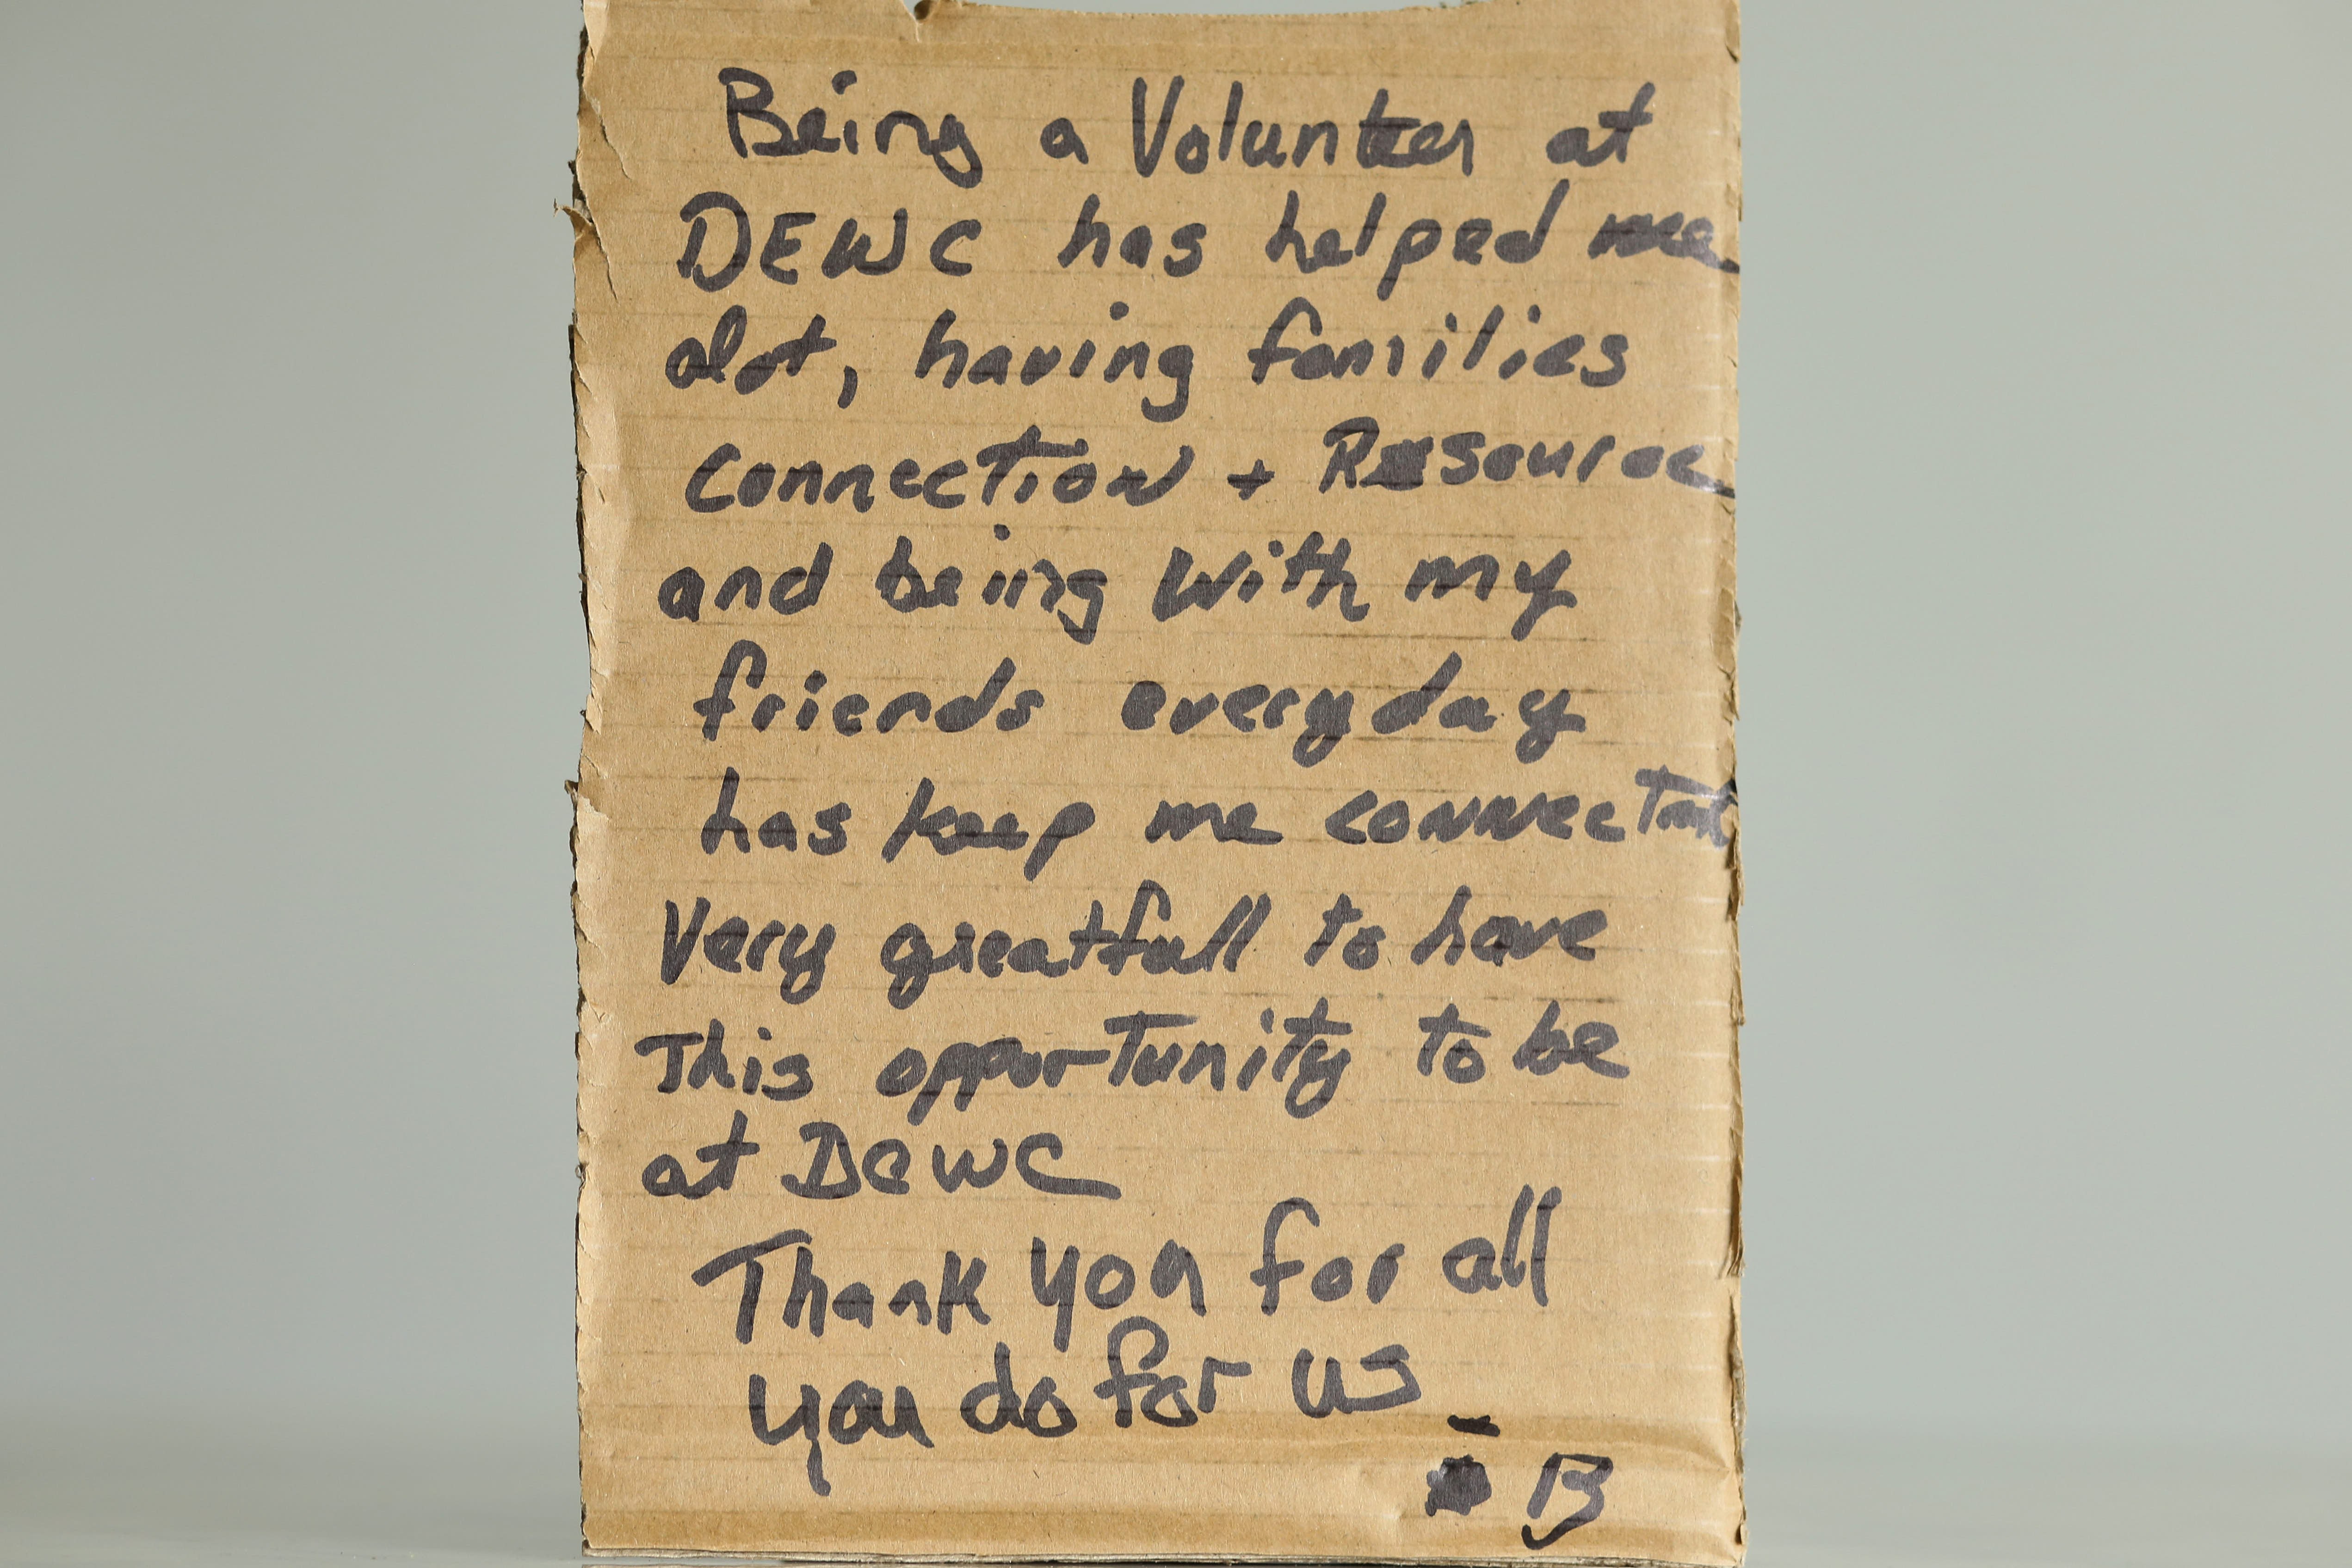 Being a Volunteer at
DEWC has helped me
alot, having families
connection + Resource
and being with my
friends everyday
has keep me connected
Very greatfull to have
This opportunity to be
at DeWC
Thank you for all
you do for us
- B